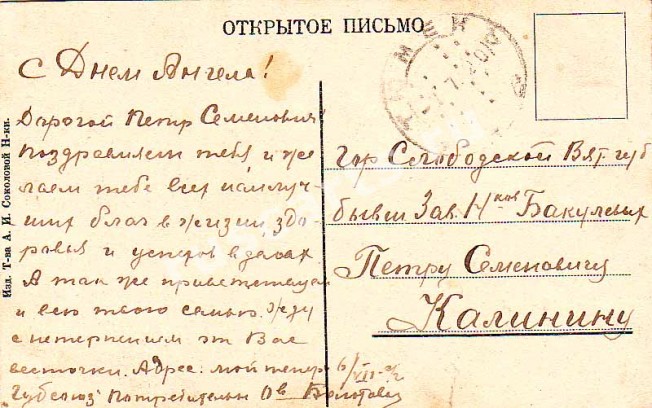 ОТКРЫТОЕ ПИСЬМО
С Днем Ангела!
Дорогой Петр Семенович!
Поздравляем тебя и же
лаем тебе всех наилуч-
ших благ в жизни, здо-
ровья и успехов в делах.
А так же приветствую
и всю твою семью. Жду
с нетерпением от Вас
весточки. Адрес: мой теперь
Губсоюз Потребительн О-в
6/VII
Гор Слободской Вят. губ
бывш Зав. Н-ков Бакулевых
Петру Семеновичу
Калинину
Изд. Т-ва А. И. Соколовой Н-кв.